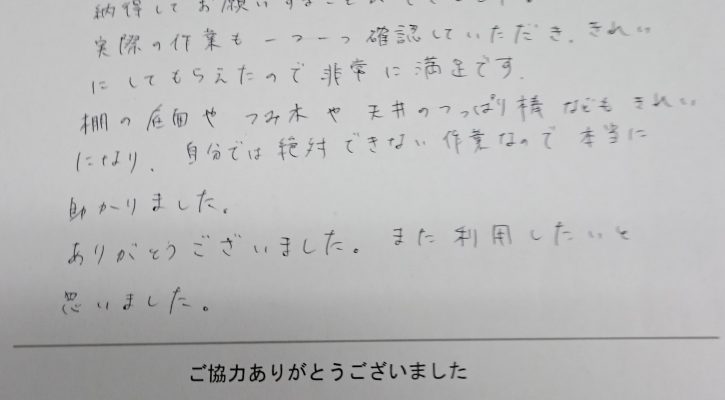 納得してお願いすることができました。
実際の作業も一つ一つ確認していただき、きれい
にしてもらえたので非常に満足です。
棚の底面や つみ木や 天井のつっぱり棒などもきれい
になり、自分では絶対できない作業なので本当に
助かりました。
ありがとうございました。また利用したいと
思いました。
ご協力ありがとうございました